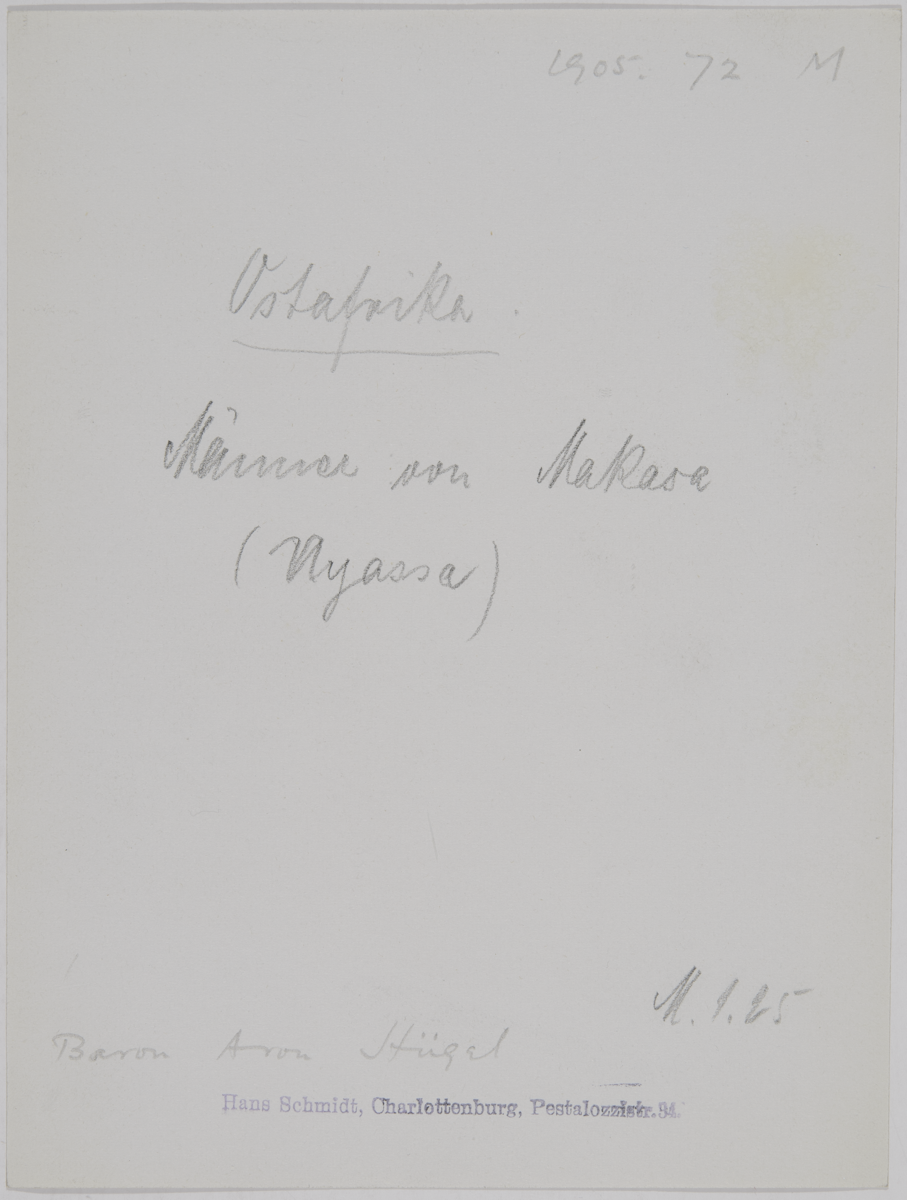 1905. 72 M
Ostafrika.
Männer von Makasa
(Nyassa)
M. 1.25
Baron Aron Hügel
Hans Schmidt, Charlottenburg, Pestalozzistr.